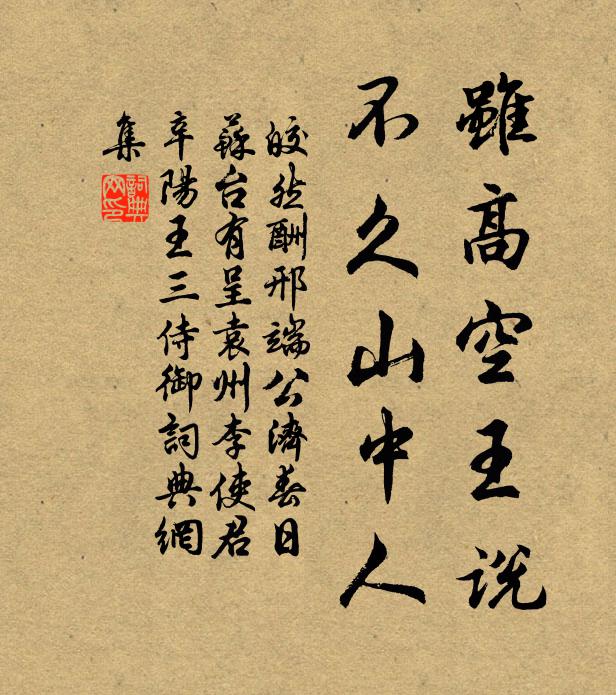 雖高空王說
不久山中人
皎然酬邢端公濟春日
蘇台有呈袁州李使君
辛陽王三侍御詞典網
集
詞典
网印